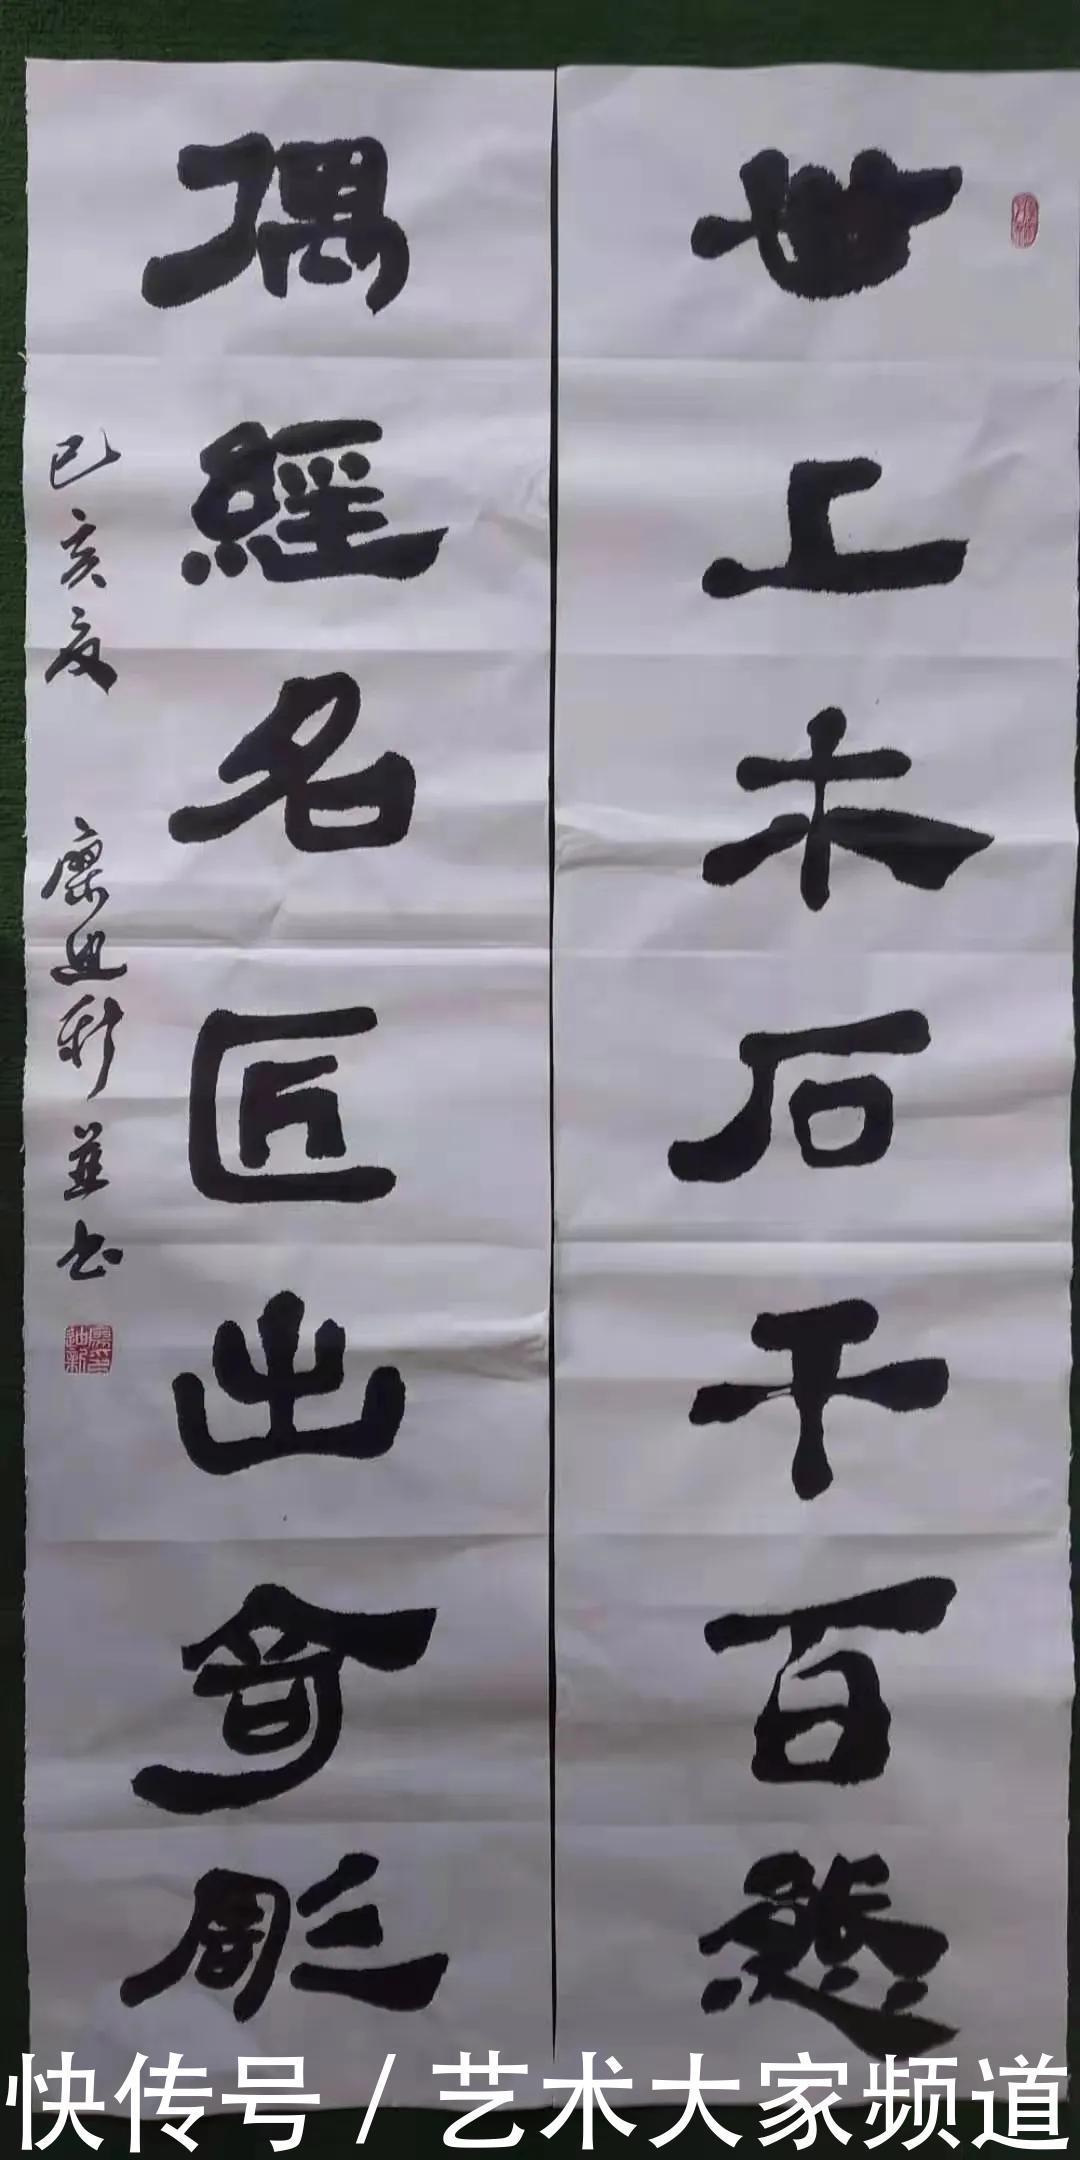 世上木石千百態
偶經名匠出奇彫
己亥夏 廖迪新並书
快传号 / 艺术大家频道